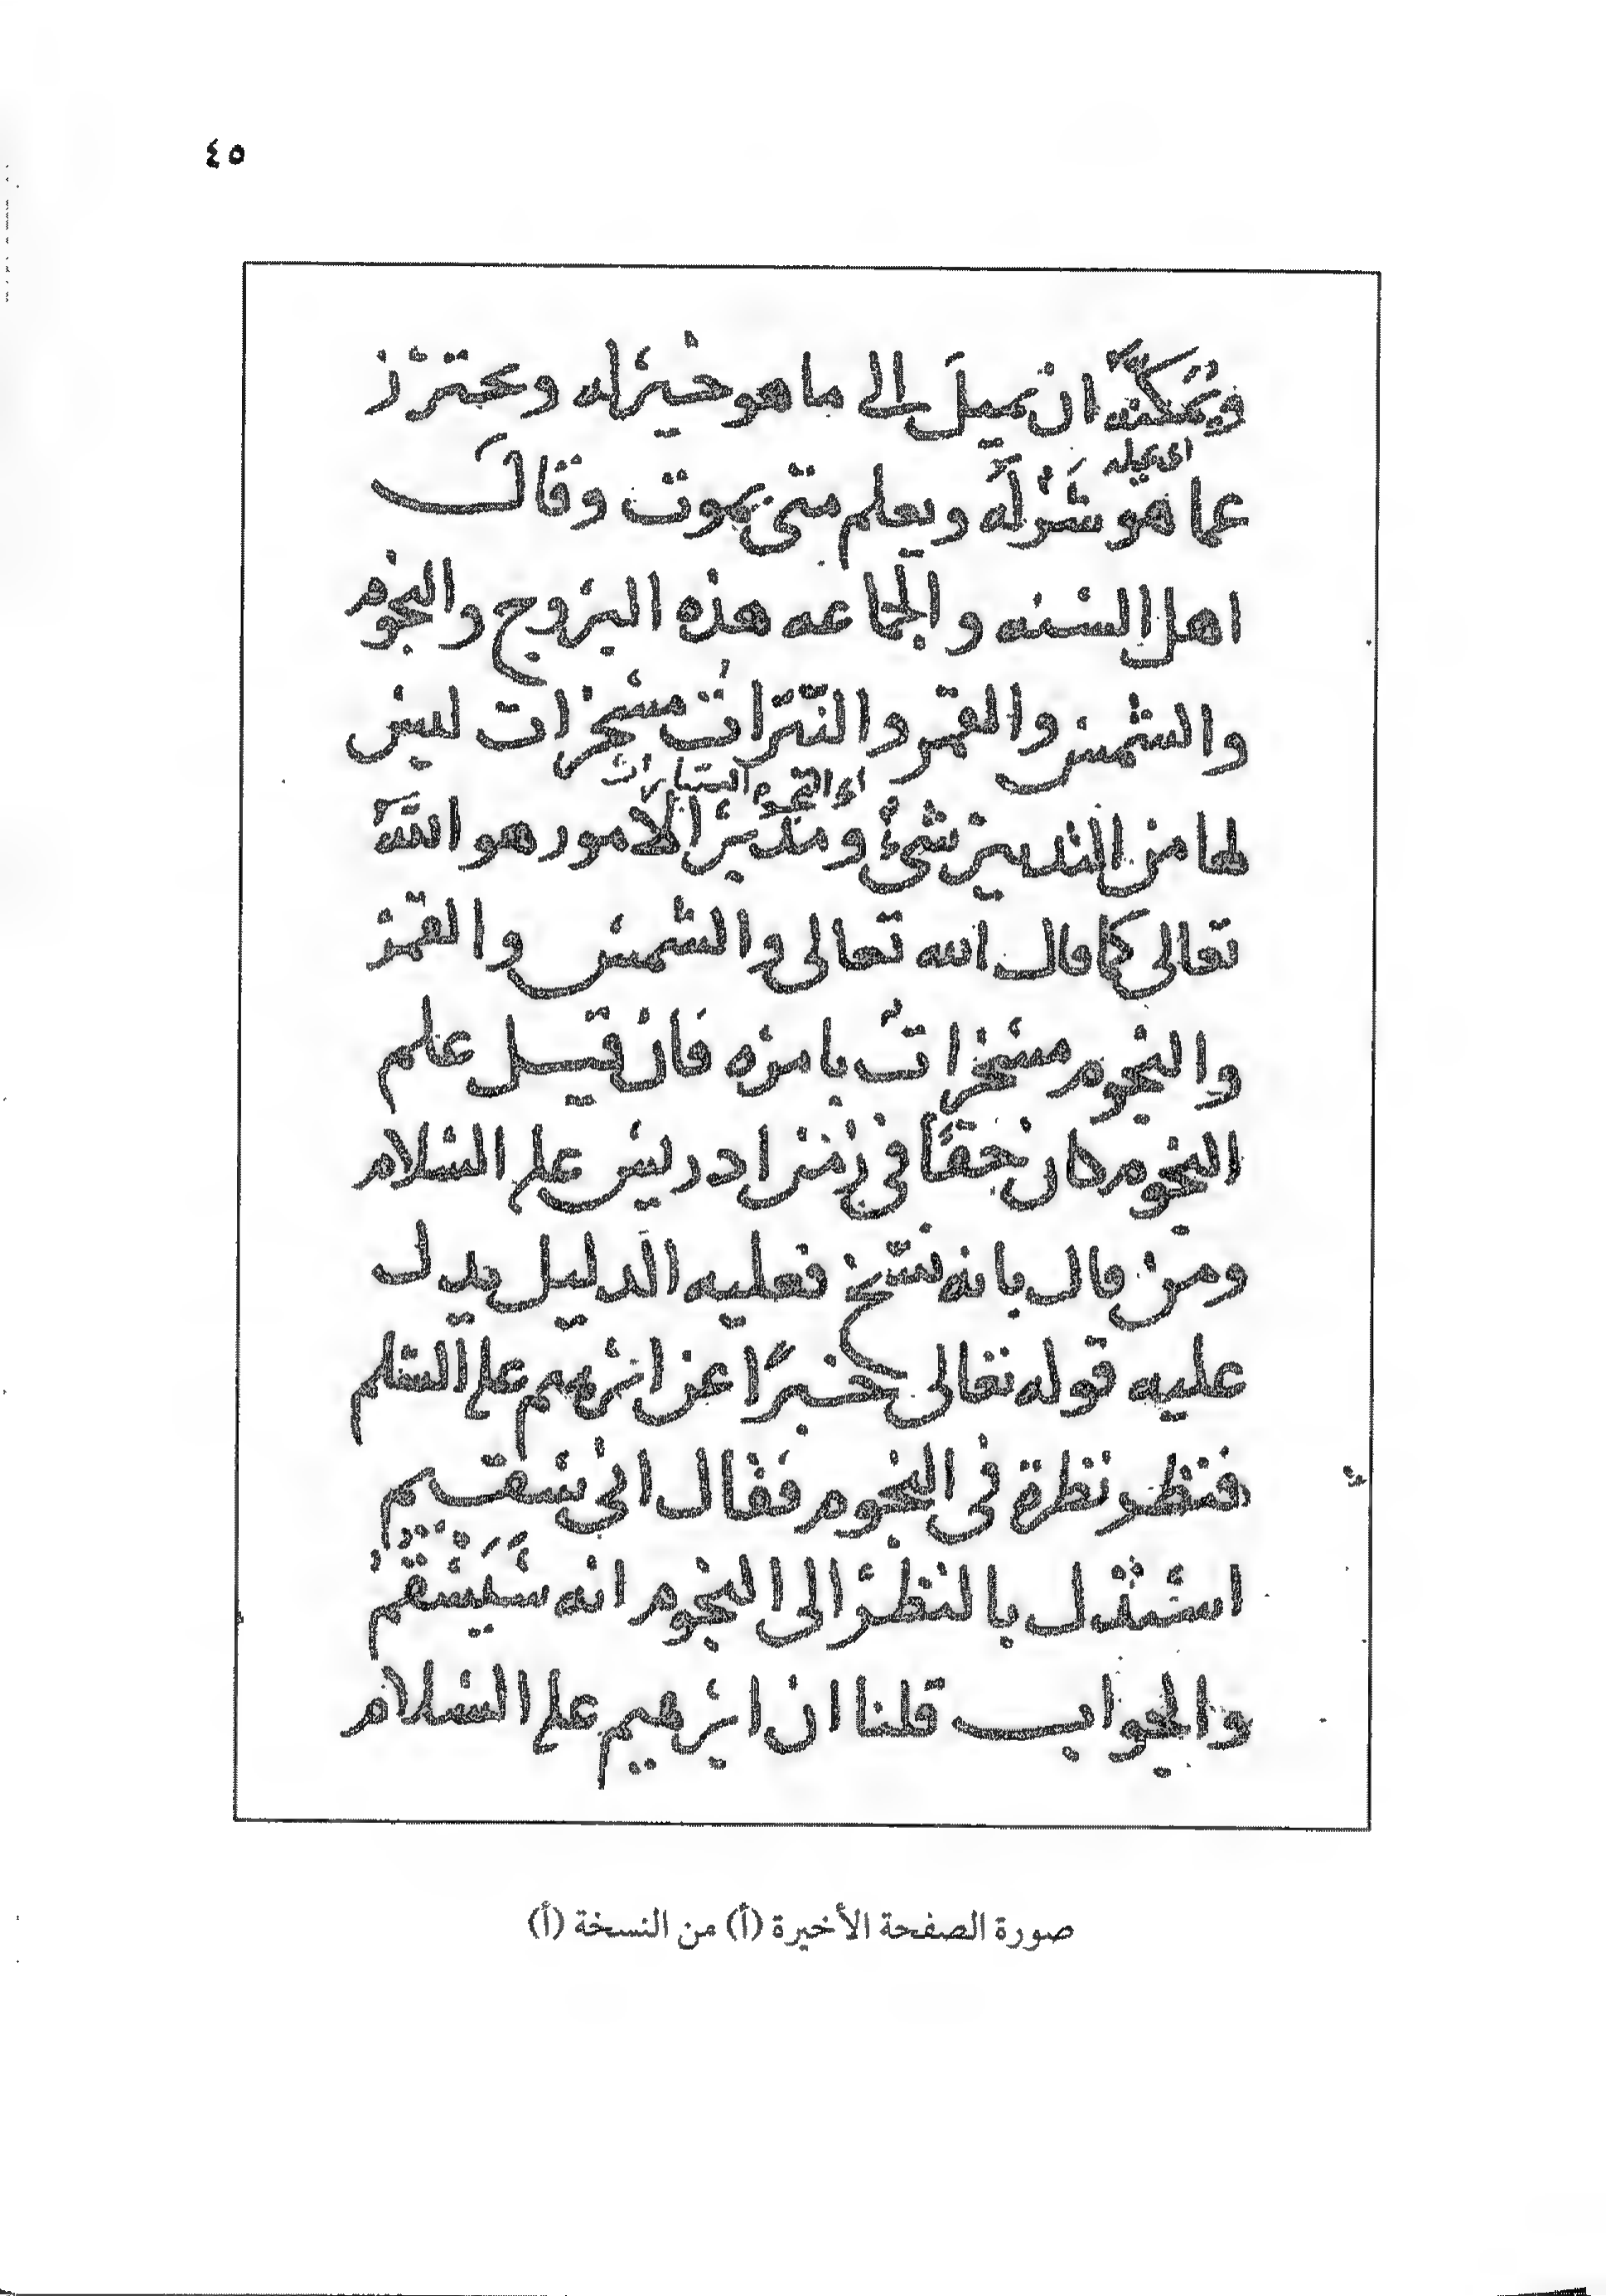 ٤٥
ويمكنه ان يميل الى ما هو خير له ويحترز
اى عيله
عما هو شر له ويعلم متى يموت وقال
اهل السنه والجماعه هذه البروج والنجوم
والشمس والقمر والنيرات مسخرات ليس
اى النجوم السيارات
لها من التدبير شئ ومدبر الامور هو الله
تعالى كما قال الله تعالى والشمس والقمر
والنجوم مسخرات بامره فان قيل علم
النجوم كان حقا فى زمن ادريس علم السلام
ومن قال بانه نسخ فعليه الدليل يدل
عليه قوله تعالى خبرًا عن ابرهيم علم السلم
فنظر نظرة فى النجوم فقال انى سقيم
استدل بالنظر الى النجوم انه سَيَسْقُم
والجواب قلنا ان ابرهيم علم السلام
صورة الصفحة الأخيرة (أ) من النسخة (أ)